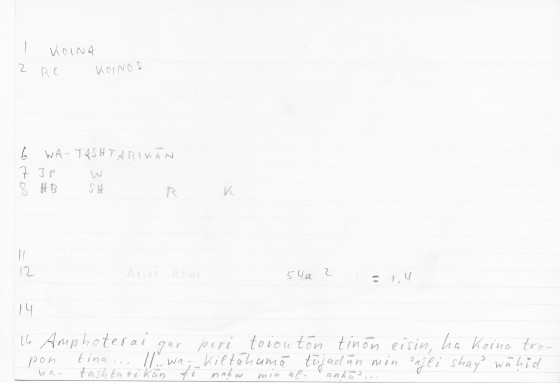 1 KOINA
2 RC KOINOS
6 WA-TASHTARIKĀN
7 3P W
8 HB SH R K
11
12 Arist Rhet 54a 2 = r.4
14
16 Amphoterai gar peri toioutōn tinōn eisin, ha Koina tro-
pon tina... || wa-Kiltāhumā tūjadān min ʾajli shayʾ wāhid
wa-tashtarikān fī nahw min al-anhāʾ...